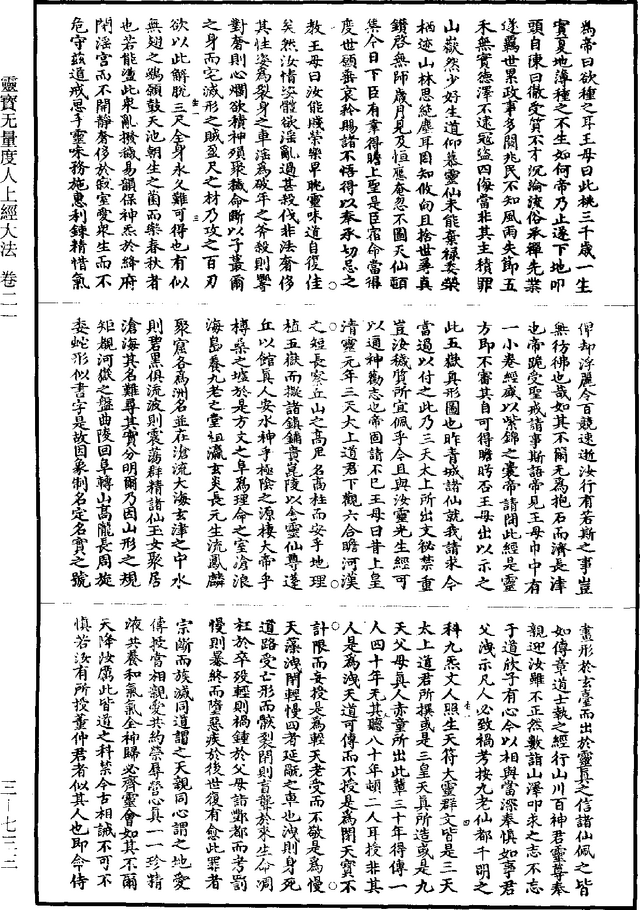 為帝曰欲種之耳王母曰此桃三千歲一生
實夏地薄種之不生如何帝乃止遂下地叩
頭自陳曰徹受質不才沉淪流俗承禪先業
遂羈世累政事多闕兆民不知風雨失節五
禾無實德澤不逮寇盜四海當非其主積罪
山嶽然少好生道仰慕靈仙未能棄祿委榮
栖迹山林思絕塵耳罔知攸向且捨世尋真
鑽啓無師歲月見及恒應奄忽不圖天仙頓
集今日下臣有辜得瞻上聖是臣宿命當得
度世願垂哀矜賜諸不悟得以奉承切忌之
教王母曰汝能賤榮樂早眈靈味道自復佳
矣然汝情姿體欲淫亂過甚殺伐非法奢侈
其佳姿為裂身之車淫為破年之斧殺則響
對奢則心爛欲積神殞聚穢命斷以子蕞爾
之身而宅滅形之賊盈尺之材乃攻之百刃
欲以此解脫三尺全身永久難可得也有似
無翅之鷃願鼓天池朝生之菌而樂春秋者
也若能蕩此衆亂撥穢易韻保神炁於絳府
閉淫宮而不開靜奢侈於寂室愛衆生而不
危守茲道戒思乎靈味務施惠利鍊精惜氣
俾却浮麗令百競速逝汝行有若斯之事豈
無彷彿也哉如其不爾无為抱石而濟長津
也帝跪受聖戒請事斯語帝見王母巾中有
一小卷經盛以紫錦之囊帝請問此經是靈
方耶不審其自可得瞻眄否王母出以示之
此五嶽真形圖也昨青城諸仙就我請求今
當過以付之此乃三天太上所出文秘禁重
豈汝穢質所宜佩乎今且與汝靈光生經可
以通神勸志也帝固請不已王母曰昔上皇
清靈元年三天太上道君下觀六合瞻河漢
之短長察丘山之高卑名高柱而安乎地理
植五嶽而擬諸鎮輔貴崑陵以舍靈仙尊蓬
丘以館真人安水神乎極陰之源棲大帝乎
榑桑之墟於是方丈之阜為理命之室滄浪
海島養九老之堂祖瀛玄炎長元生流鳳麟
聚窟各為洲名並在滄流大海玄津之中水
則碧黑俱流波則震蕩群精諸仙玉女聚居
滄海其名難尋其實分明爾乃因山形之規
矩覩河嶽之盤曲陵回阜轉山高隴長周旋
委蛇形似書字是故因象制名定名實之號
畫形於玄臺而出於靈真之信諸仙佩之皆
如傳章道士執之經行山川百神君靈尊奉
親迎汝雖不正然數詣山澤叩求之志不忘
于道欣子有心今以相與當深奉慎如事君
父洩示凡人必致禍考按九老仙都千明之
科九炁丈人照生天符太靈群文皆是三天
太上道君所撰或是三皇天真所造或是九
天父母真人赤童所出此輩三十年得傳一
人四十年无其聽八十年頓二人耳授非其
人是為洩天道可傳而不授是為閉天寶不
計限而妄授是為輕天老受而不敬是為慢
天藻洩閉輕慢四者延齪之車也洩則身死
道路受亡形而骸裂閉則盲聾於來生命凋
枉於卒歿輕則禍鍾於父母詣酆都而考罰
慢則暴終而墮惡疾於後世復有愈此罪者
宗斷而族滅同道謂之天親同心謂之地愛
傳授當相親愛共約榮辱營心真一一珍精
液共養和氣氣全神歸必齊靈會如其不爾
天降汝厲此皆道之科禁今古相誡不可不
慎若汝有所授董仲君者似其人也即命侍
靈寶无量度人上經大法 卷二一
三—七三二